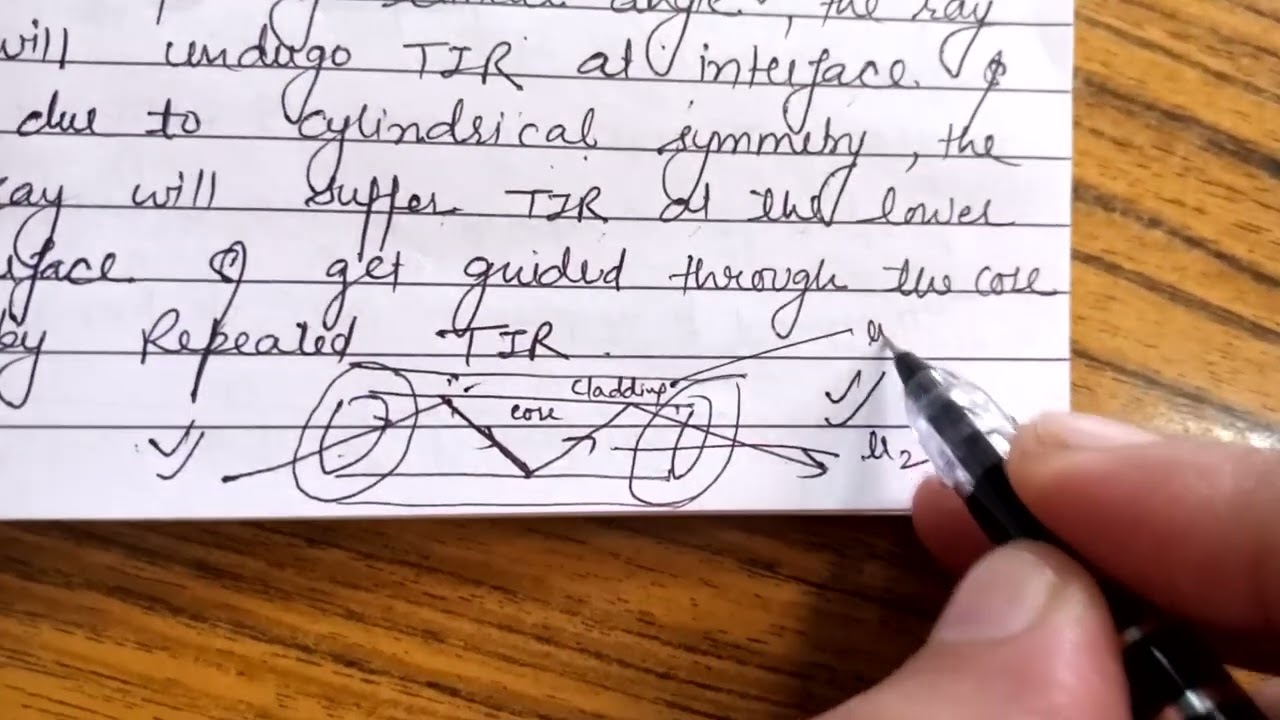 angle, the ray
will undergo TIR at interface. &
due to cylindrical symmetry, the
ray will suffer TIR at the lower
face & get guided through the core
by Repeated TIR.
μ
cladding
core
μ2